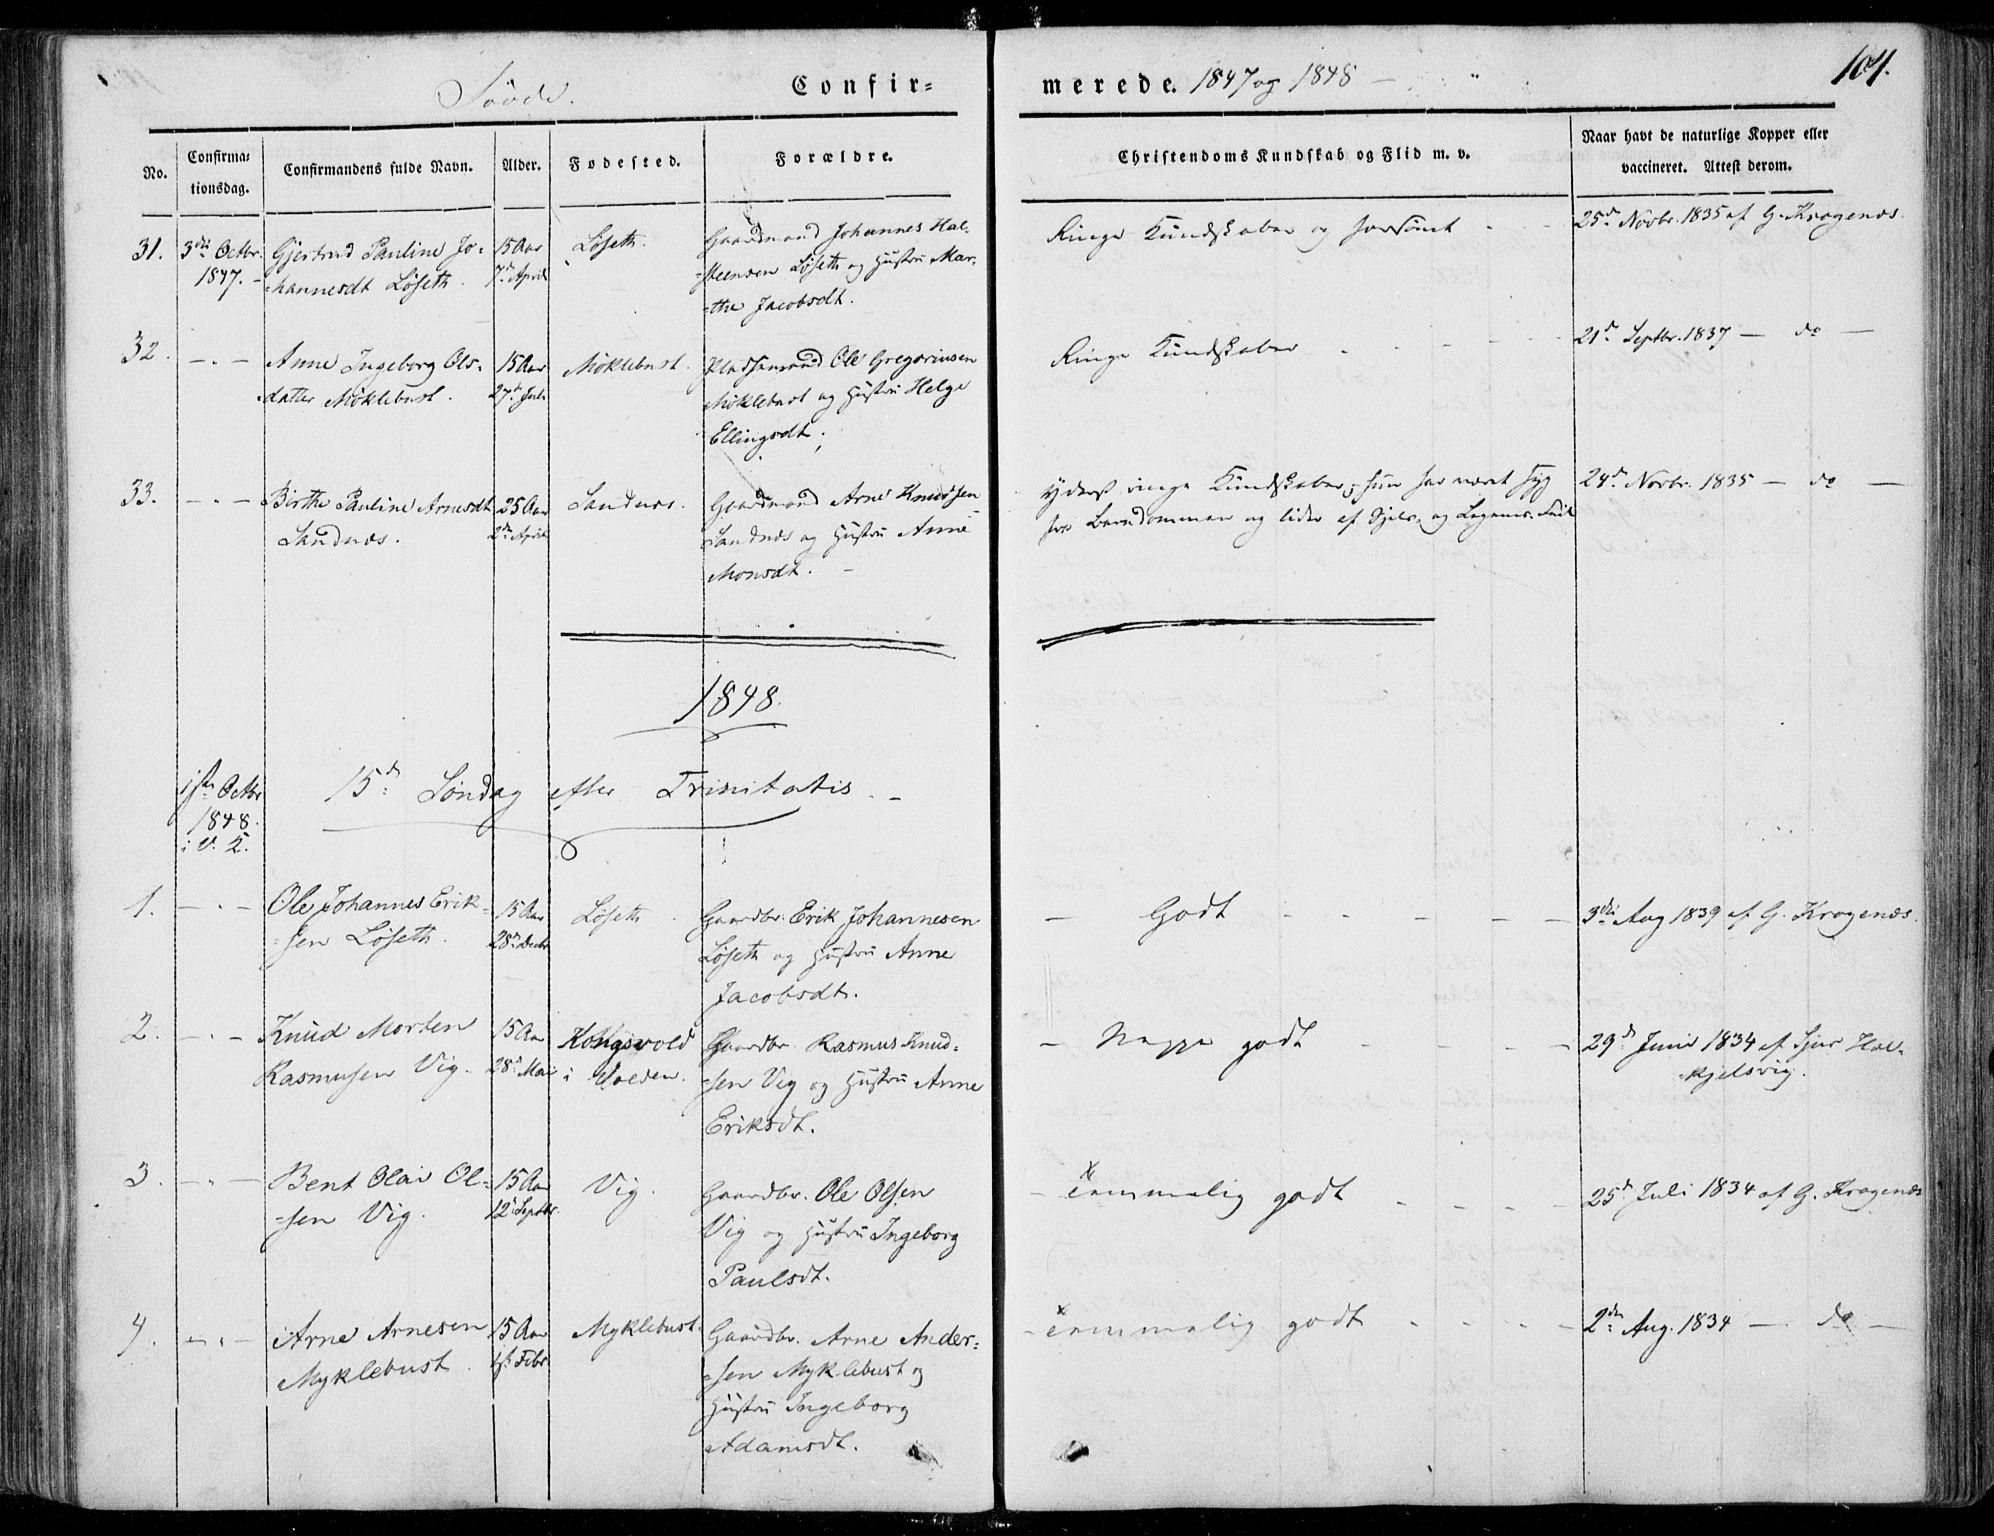 Sövde.
Confir=
merede. 1847 og 1848 —
104.
No.
Confirma=
tionsdag.
Confirmandens fulde Navn.
Alder.
Fødested.
Forældre.
Christendoms Kundskab og Flid m. v.
Naar havt de naturlige Kopper eller
vaccineret. Attest derom.
31.
3die Octbr.
1847.
Gjertrud Pauline Jo-
-hannesdt Löseth.
15 Aar
7de April
Löseth.
Gaardmand Johannes Hal-
-steensen Löseth og Hustru Mar-
-the Jacobsdt.
Ringe Kundskaber og forsömt
25de Novbr. 1835 af G. Kragenæs.
32.
Anne Ingeborg Ols-
datter Möklebust.
15 Aar
27de Juli
Möklebust.
Pladsemand Ole Gregoriusen
Möklebust og Hustru Helge
Ellingsdt.
Ringe Kundskaber
21de Septbr. 1837 — do —
33.
Birthe Pauline Arnesdt
Sandnæs.
25 Aar
2den April
Sandnæs.
Gaardmand Arne Knudsen
Sandnæs og Hustru Anne
Monsdt.
Yderst ringe Kundskaber; hun har været syg
fra Barndommen og lider af Sjels- og Legems-
24de Novbr. 1835 — do —
1848.
1ste Octbr
1848.
i V. K.
15de Söndag efter Trinitatis.
1.
Ole Johannes Erik-
-sen Löseth.
15 Aar
28de Decbr
Löseth.
Gaardbr. Erik Johannesen
Löseth og Hustru Anne
Jacobsdt.
Godt
3die Aug 1839 af G. Kragenæs.
2.
Knud Morten
Rasmusen Vig.
15 Aar
28de Mai
Kongsvold
i Volden.
Gaardbr. Rasmus Knud-
-sen Vig og Hustru Anne
Eriksdt.
Meget godt
29de Junii 1834 af Sjur Hal-
-kjelsvig.
3.
Bent Olai Ol-
-sen Vig.
15 Aar
12te Septbr.
Vig.
Gaardbr. Ole Olsen
Vig og Hustru Ingeborg
Paulsdt.
temmelig godt
25de Juli 1834 af G. Kragenæs
4.
Arne Arnesen
Myklebust.
15 Aar
1ste Febr.
Myklebust.
Gaardbr. Arne Ander-
-sen Myklebust og
Hustru Ingeborg
Adamsdt.
temmelig godt
2den Aug. 1834 — do —